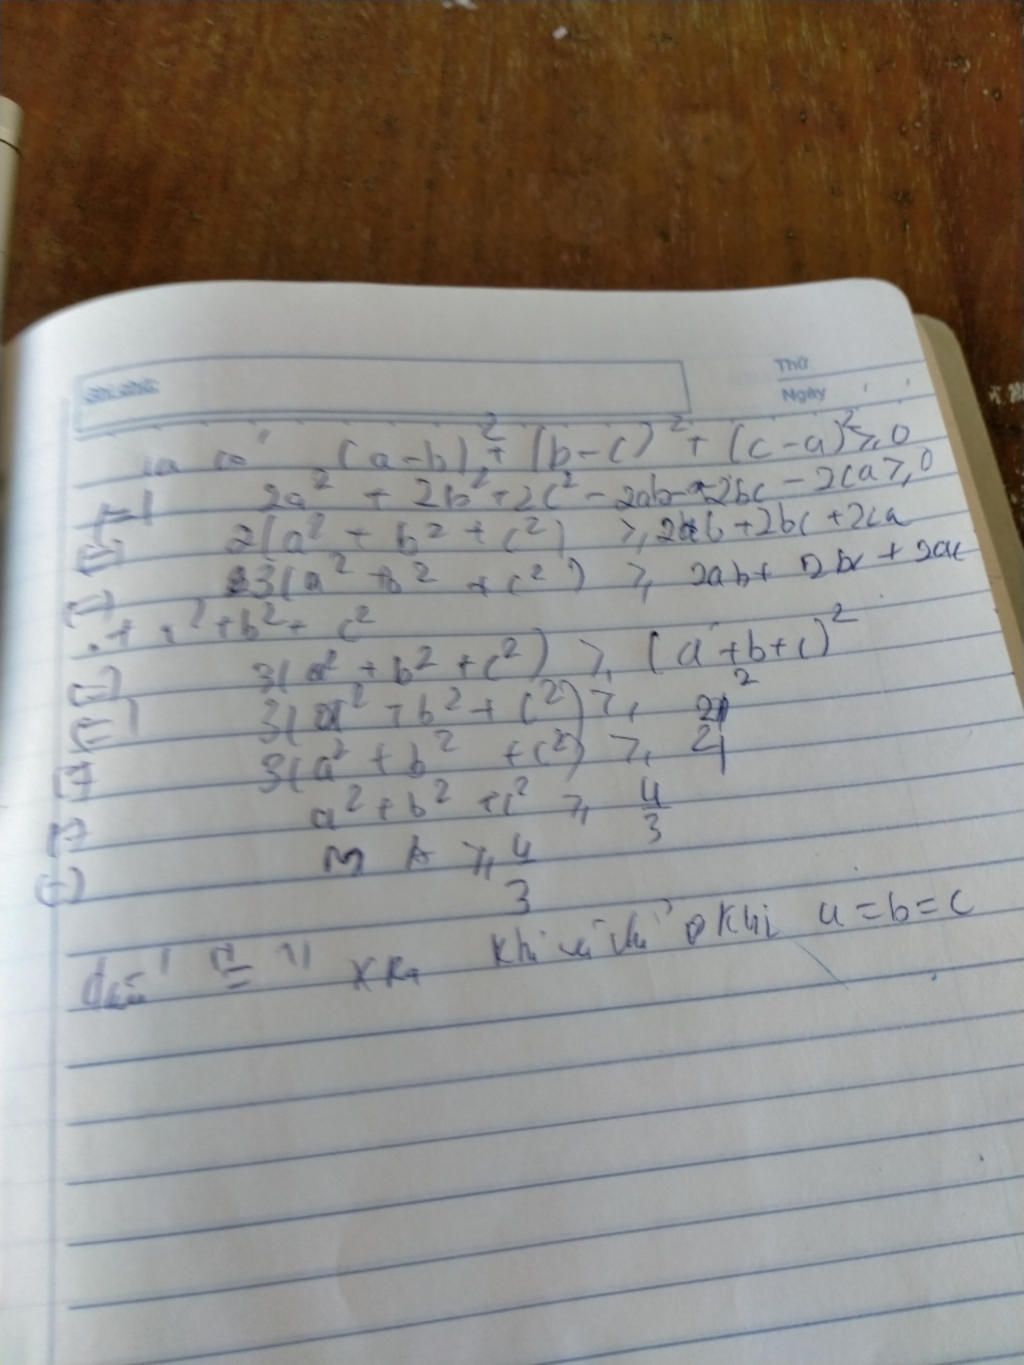 Ghi chú:
Thứ
Ngày
Ta có (a-b)² + (b-c)² + (c-a)² ≥ 0
(=) 2a² + 2b² + 2c² - 2ab - 2bc - 2ca ≥ 0
(=) 2(a² + b² + c²) ≥ 2ab + 2bc + 2ca
(=) 3(a² + b² + c²) ≥ 2ab + 2bc + 2ac
+ a² + b² + c²
(=) 3(a² + b² + c²) ≥ (a+b+c)²
(=) 3(a² + b² + c²) ≥ 2²
(=) 3(a² + b² + c²) ≥ 4
(=) a² + b² + c² ≥ 4/3
(=) A ≥ 4/3
dấu "=" xra khi và chỉ khi a=b=c